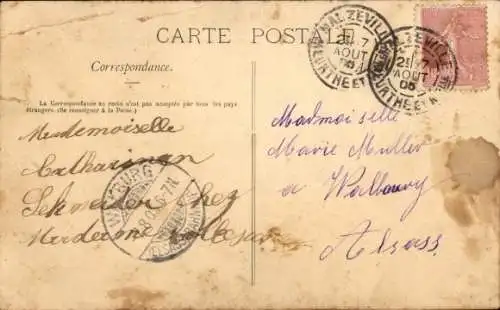 CARTE POSTALE
Correspondance.
La Correspondance au recto n'est pas acceptée par tous les pays
étrangers. (Se renseigner à la Poste.)
Mademoiselle
Catharinan
Schneider chez
Madame
Madmoiselle
Marie Muller
a Walbourg
Alsass
MALZEVILLE
21 7
AOUT
05
MEURTHE ET M
MALZEVILLE
21 7
AOUT
05
MEURTHE ET M
WALBURG